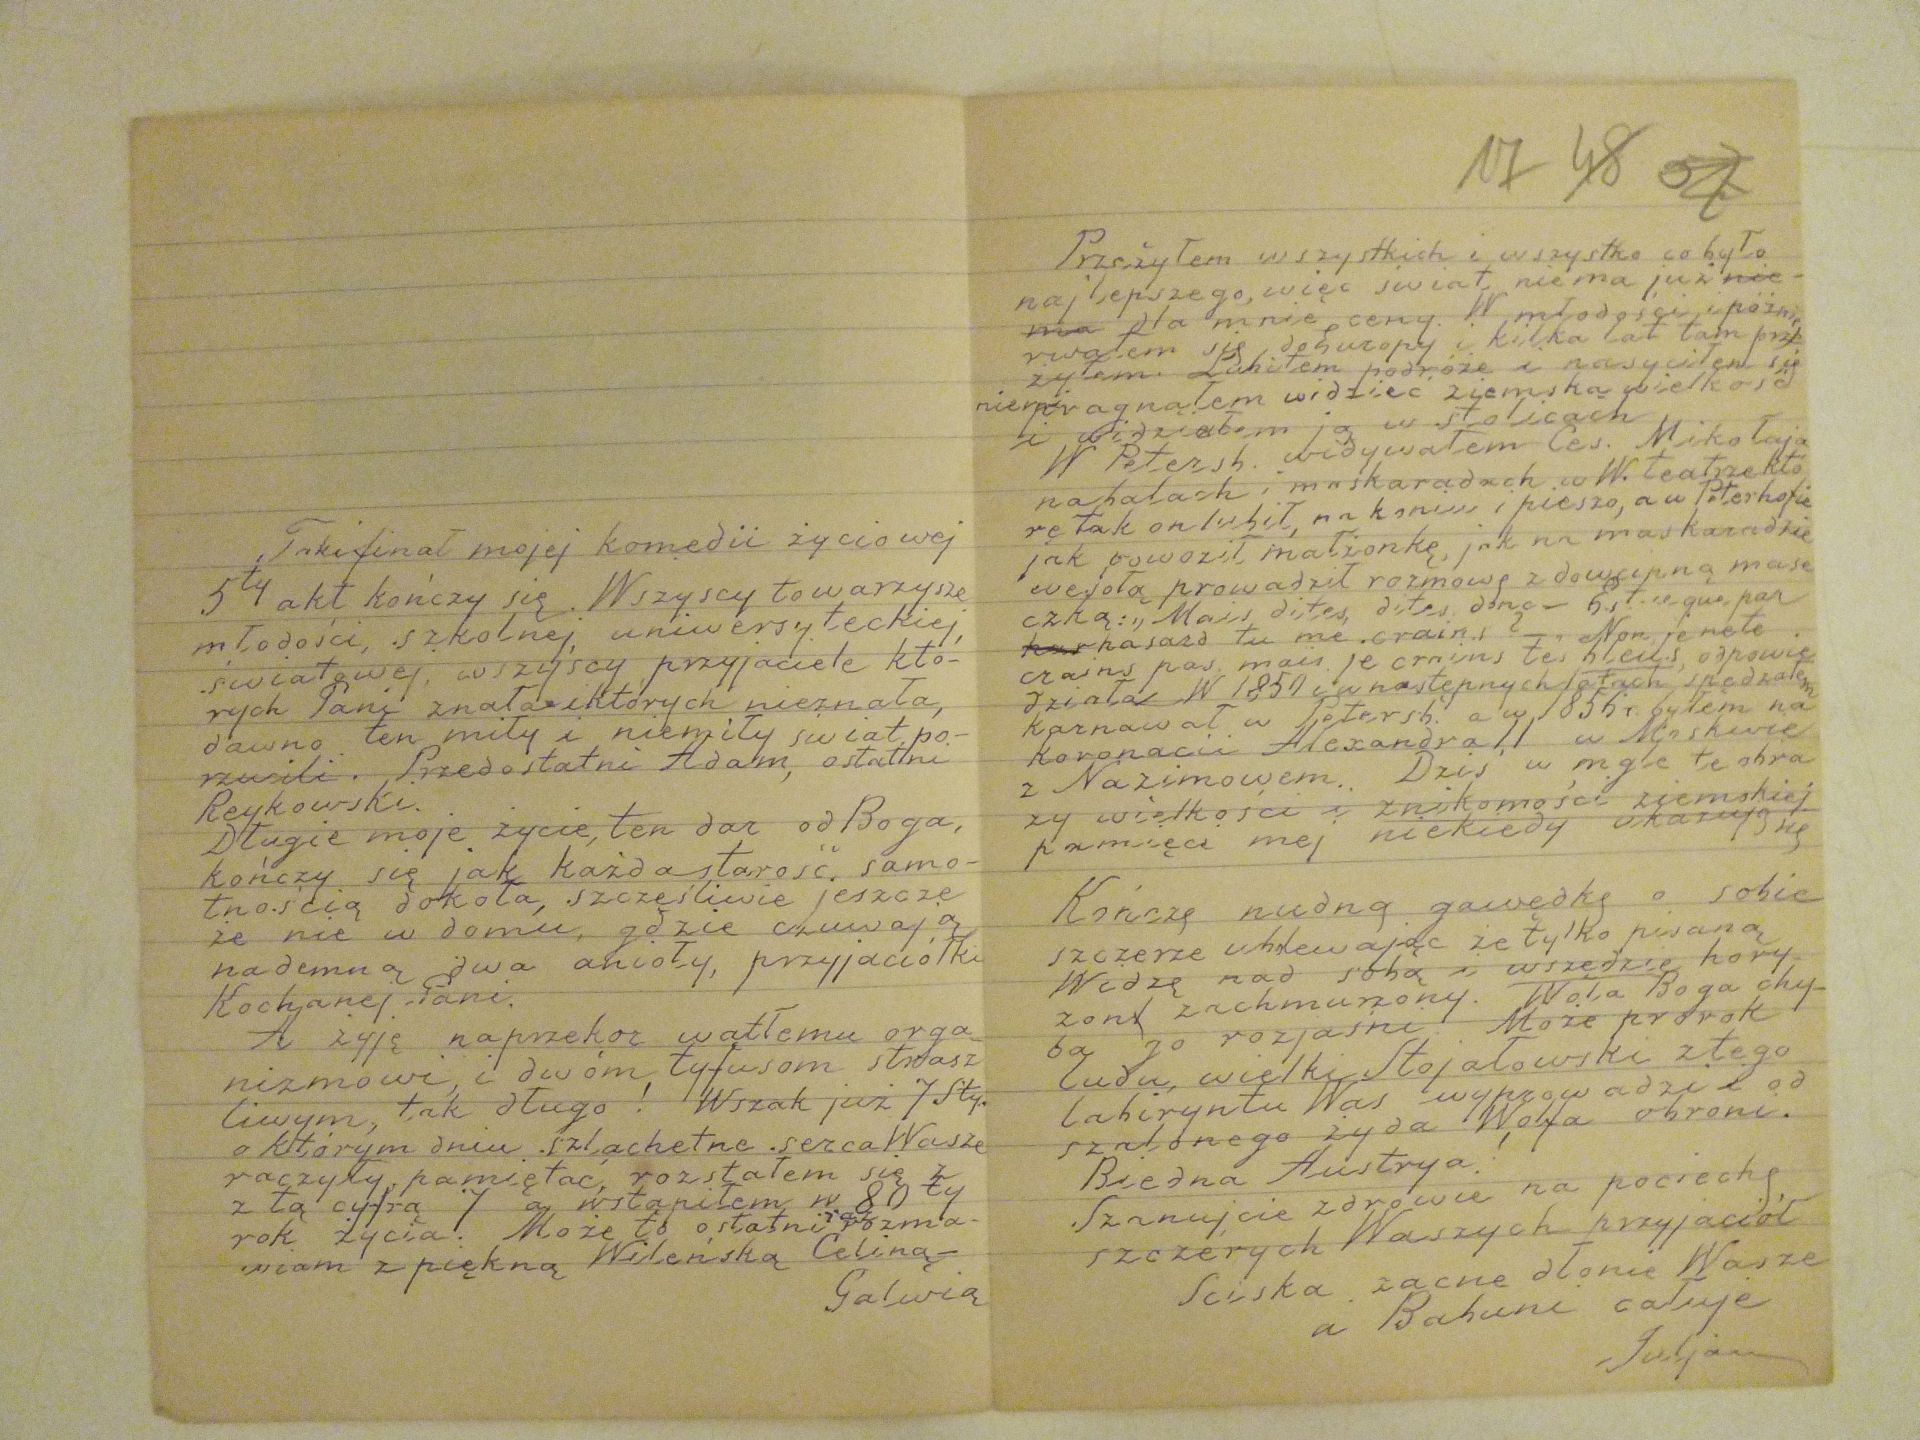 Taki finał mojej komedii życiowej
5ty akt kończy się. Wszyscy towarzysze
młodości, szkolnej, uniwersyteckiej,
światowej, wszyscy przyjaciele któ-
rych Pani znała i których nieznała,
dawno ten miły i niemiły świat po-
rzucili. Przedostatni Adam, ostatni
Reykowski.
Długie moje życie, ten dar od Boga,
kończy się jak każda starość samo-
tnością dokoła, szczęśliwie jeszcze
że nie w domu, gdzie czuwają
nademną dwa anioły, przyjaciółki
Kochanej Pani.
A żyję naprzekor wątłemu orga-
nizmowi, i dwóm tyfusom strasz
liwym, tak długo! Wszak już 7 Sty.
o którym dniu szlachetne serca Wasze
raczyły pamiętać, rozstałem się z
z tą cyfrą 7 a wstąpiłem w 80ty
rok życia. Może to ostatni raz rozma-
wiam z piękną Wileńską Celiną—
Galwią
17 48 57
Przeżyłem wszystkich i wszystko co było
najlepszego, więc świat niema już nie-
ma dla mnie ceny. W młodości i późnie
rwałem się do Europy i kilka lat tam prze
żyłem. Lubiłem podróże i nasyciłem się
niemi pragnąłem widzieć ziemską wielkość
i widziałem ją w stolicach
W Petersb. widywałem Ces. Mikołaja
na balach i maskaradach w W. teatrze któ
re tak on lubił, na koniu i pieszo, a w Peterhofie
jak powoził małżonkę, jak na maskaradzie
wesołą prowadził rozmowę z dowcipną mase
czką: „Mais dites, dites donc— Est-ce que par
har hasard tu me crains? " Non je ne te
crains pas, mais je crains tes bleus, odpowie
działa W 1850 i w następnych latach spędzałem
karnawał w Petersb. a w 1856 r. byłem na
koronacii Alexandra II w Moskwie
z Nazimowem. Dziś w mgle te obra
zy wielkości i znikomości ziemskiej
pamięci mej niekiedy ukazują się
Kończę nudną gawędkę o sobie
szczerze ubolewając że tylko pisaną
Widzę nad sobą i wszędzie hory-
zont zachmurzony. Wola Boga chy-
ba go rozjaśni. Może prorok
ludu, wielki Stojałowski z tego
labiryntu Was wyprowadzi i od
szalonego żyda Wolfa obroni.
Biedna Austrya!
Szanujcie zdrowie na pociechę
szczerych Waszych przyjaciół
Sciska zacne dłonie Wasze
a Babuni całuje
Juljan